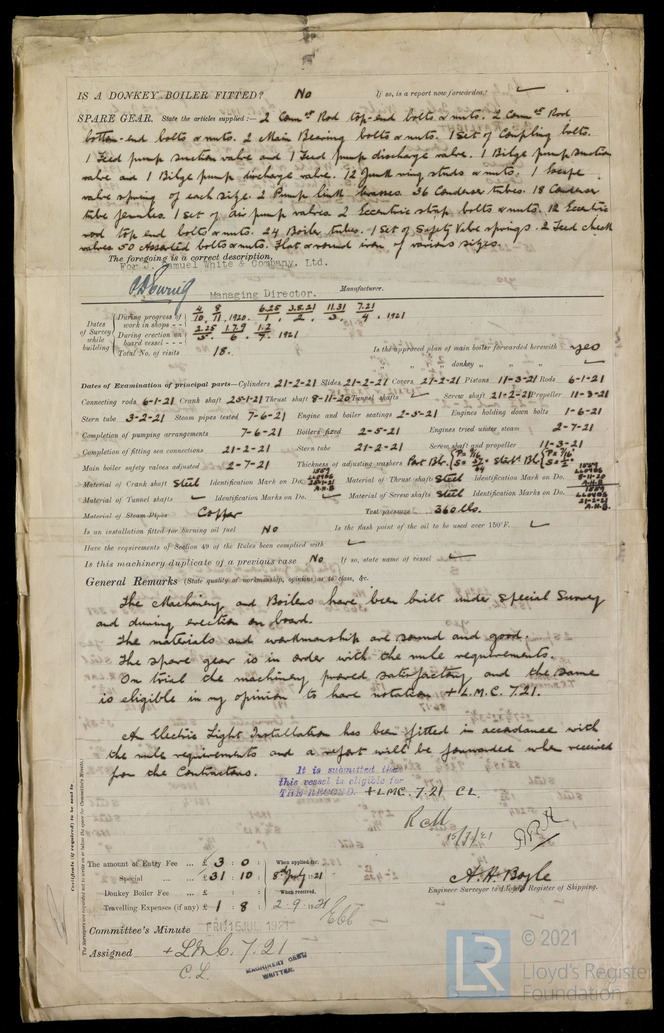 IS A DONKEY BOILER FITTED? No If so, is a report now forwarded? ✓
SPARE GEAR. State the articles supplied:— 2 Connᵍ Rod top-end bolts & nuts. 2 Connᵍ Rod
bottom-end bolts & nuts. 2 Main Bearing bolts & nuts. 1 Set of Coupling bolts.
1 Feed pump suction valve and 1 Feed pump discharge valve. 1 Bilge pump suction
valve and 1 Bilge pump discharge valve. 12 Junk ring studs & nuts. 1 Escape
valve spring of each size. 2 Pump link brasses. 36 Condenser tubes. 18 Condenser
tube ferrules. 1 set of air pump valves. 2 Eccentric strap bolts & nuts. 12 Eccentric
rod top end bolts & nuts. 24 Boiler tubes. 1 Set of Safety Valve springs. 2 Feed check
valves 50 Assorted bolts & nuts. Flat & round iron of various sizes.
The foregoing is a correct description,
For J. Samuel White & Company, Ltd.
Managing Director. Manufacturer.
Dates of Survey while building
During progress of work in shops - - 1920. 1921
During erection on board vessel - - - 1921
Total No. of visits 18.
Is the approved plan of main boiler forwarded herewith yes
" " " donkey " " ✓
Dates of Examination of principal parts—Cylinders 21-2-21 Slides 21-2-21 Covers 21-2-21 Pistons 11-3-21 Rods 6-1-21
Connecting rods 6-1-21 Crank shaft 25-1-21 Thrust shaft 8-11-20 Tunnel shafts ✓ Screw shaft 21-2-21 Propeller 11-3-21
Stern tube 3-2-21 Steam pipes tested 7-6-21 Engine and boiler seatings 2-5-21 Engines holding down bolts 1-6-21
Completion of pumping arrangements 7-6-21 Boilers fixed 2-5-21 Engines tried under steam 2-7-21
Completion of fitting sea connections 21-2-21 Stern tube 21-2-21 Screw shaft and propeller 11-3-21
Main boiler safety valves adjusted 2-7-21 Thickness of adjusting washers Port Blr. Starb. Blr
Material of Crank shaft Steel Identification Mark on Do. Material of Thrust shaft Steel Identification Mark on Do. 8-11-20 A.H.B.
Material of Tunnel shafts ✓ Identification Marks on Do. ✓ Material of Screw shafts Steel Identification Marks on Do. 21-2-21 A.H.B.
Material of Steam Pipes Copper Test pressure 360 lbs.
Is an installation fitted for burning oil fuel No Is the flash point of the oil to be used over 150°F. ✓
Have the requirements of Section 49 of the Rules been complied with ✓
Is this machinery duplicate of a previous case No If so, state name of vessel ✓
General Remarks (State quality of workmanship, opinions as to class, &c.
The Machinery and Boilers have been built under Special Survey
and during erection on board.
The materials and workmanship are sound and good.
The spare gear is in order with the rule requirements.
On trial the machinery proved satisfactory and the same
is eligible in my opinion to have notation + L.M.C. 7.21.
An Electric Light Installation has been fitted in accordance with
the rule requirements and a report will be forwarded when received
from the Contractors.
It is submitted that
this vessel is eligible for
THE RECORD. + LMC. 7.21 CL.
15/7/21
The amount of Entry Fee ... £ 3 : 0 When applied for,
Special ... £ 31 : 10 8th July 1921
Donkey Boiler Fee ... £ : : When received,
Travelling Expenses (if any) £ 1 : 8 2.9.1921
A. H. Boyle
Engineer Surveyor to Lloyd's Register of Shipping.
Committee's Minute FRI 15 JUL 1921
Assigned + LMC. 7.21
C.L.
MACHINERY CERT
WRITTEN.
Certificate (if required) to be sent to
The Surveyors are requested not to write on or below the space for Committee's Minute.
LR © 2021
Lloyd's Register
Foundation